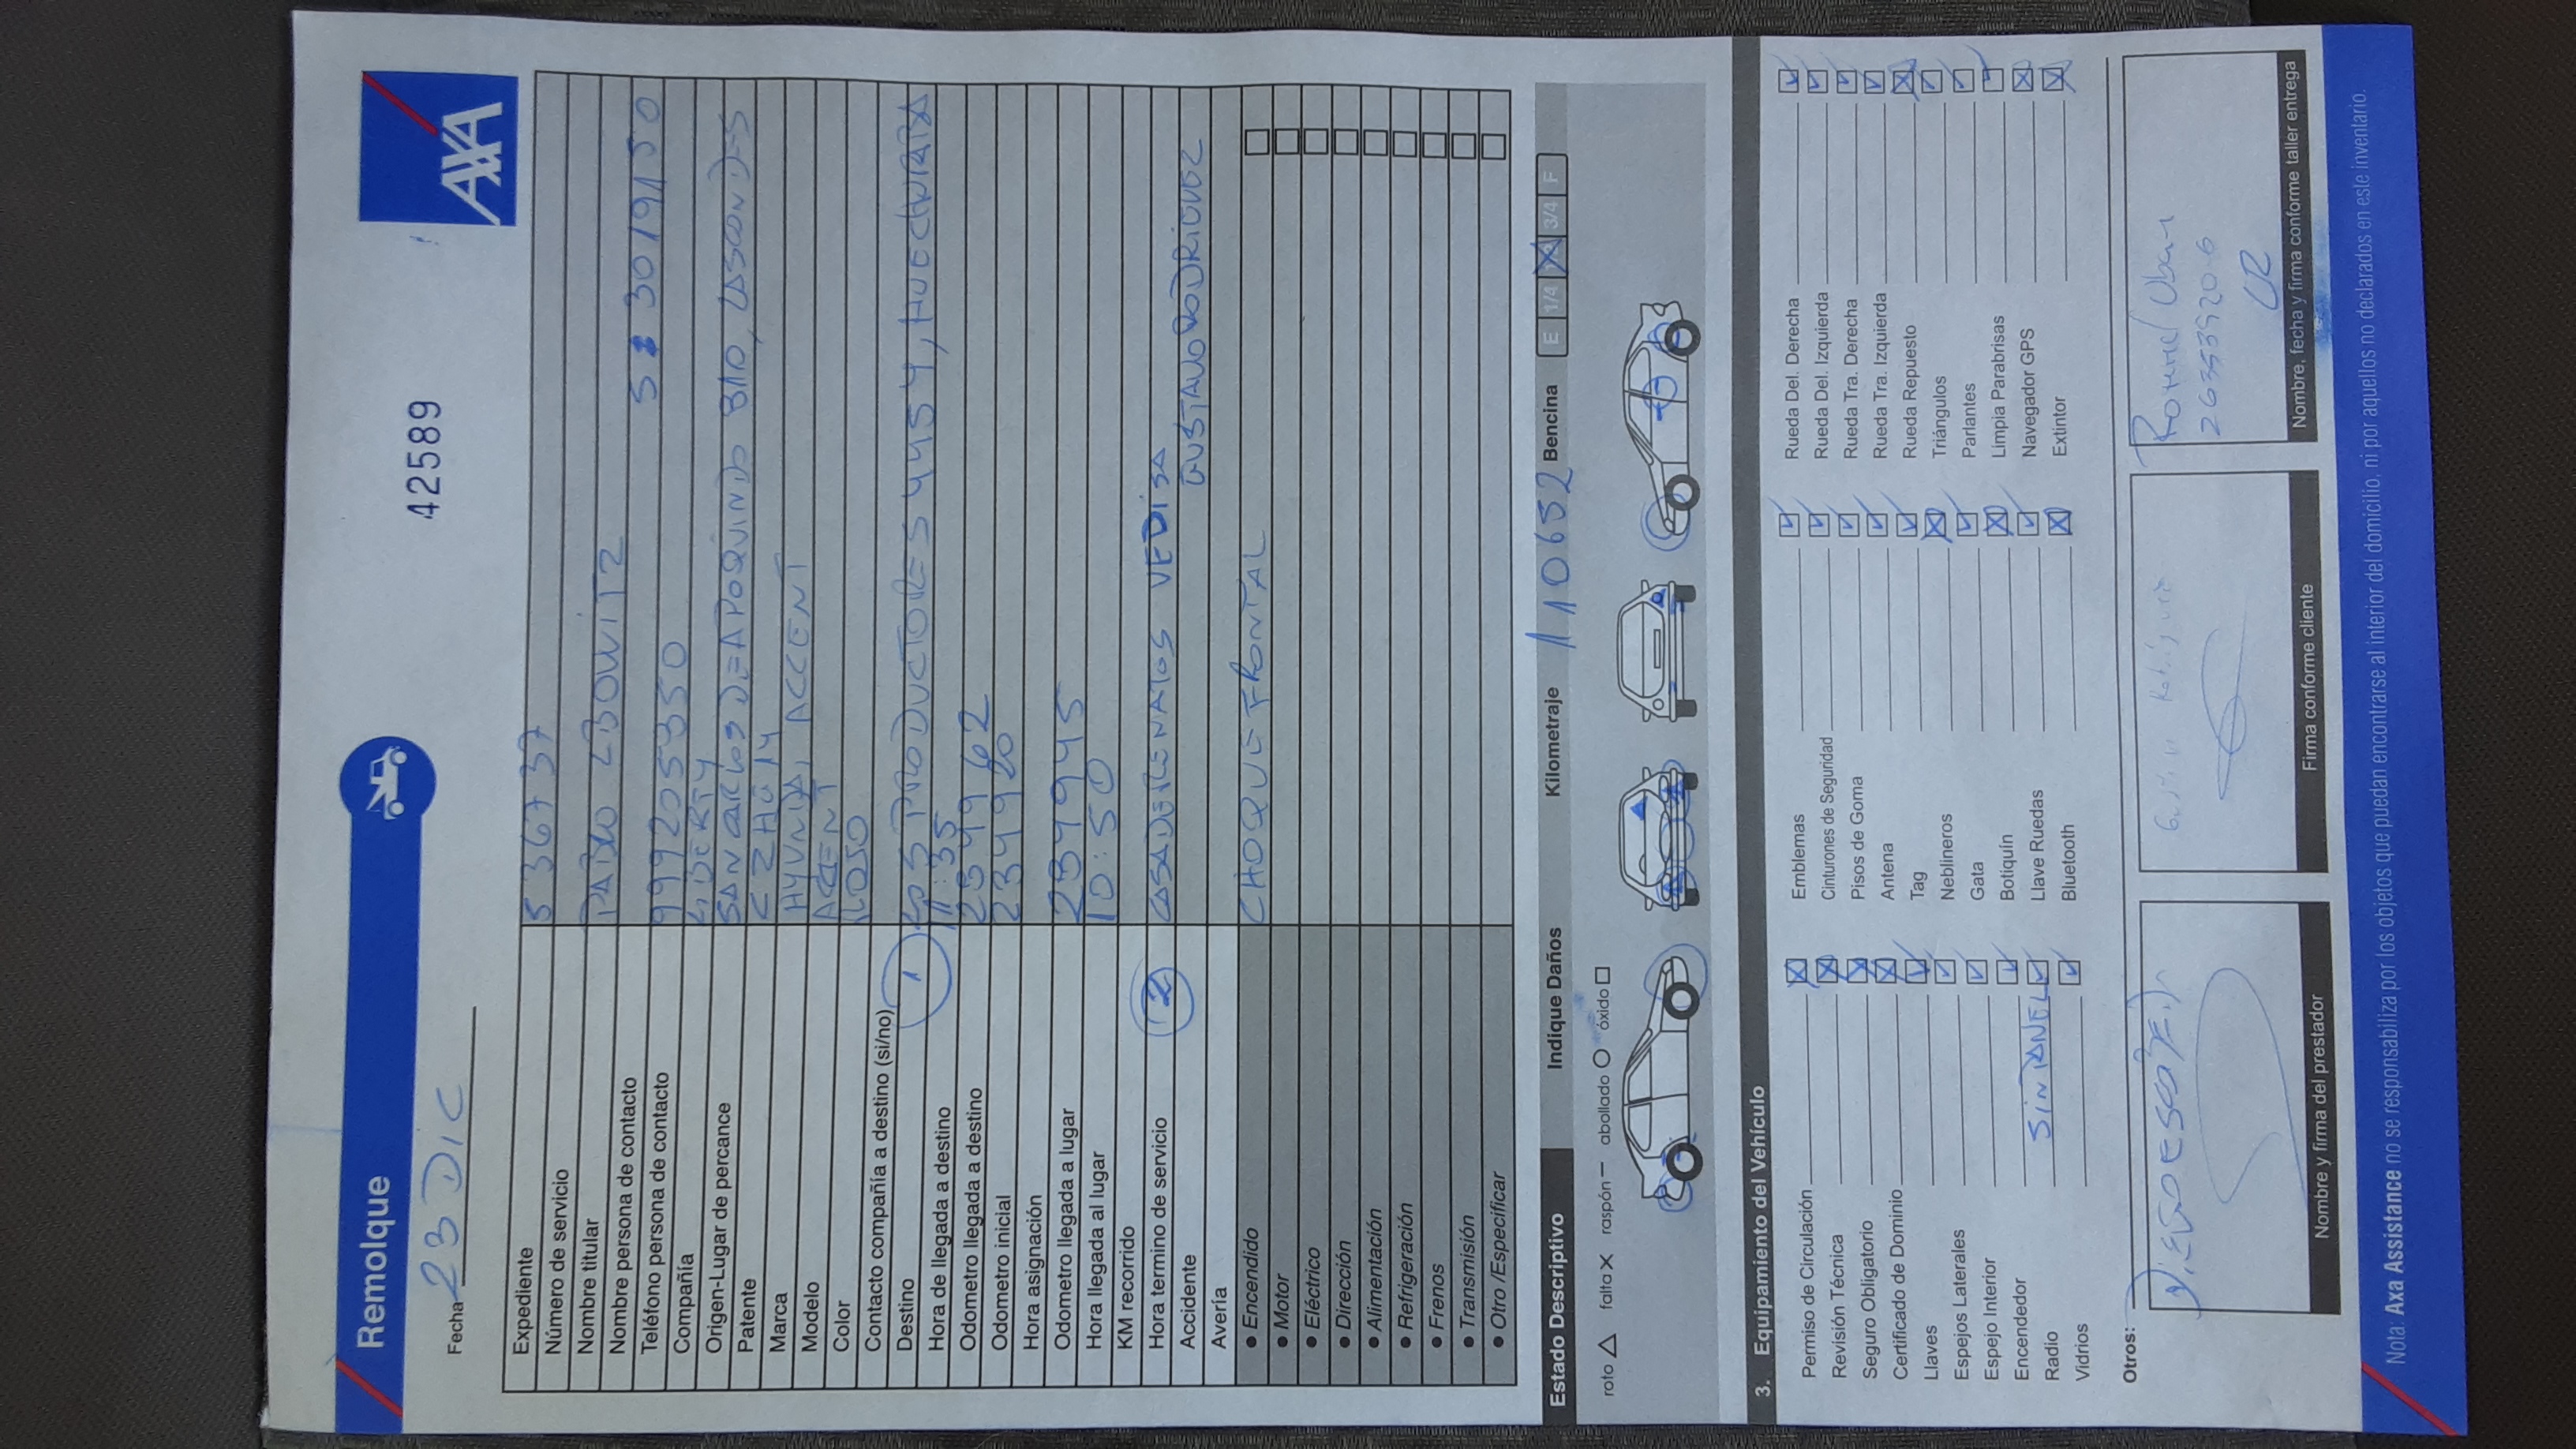 Remolque
42589
AXA
Fecha 23 DIC
Expediente 536737
Número de servicio
Nombre titular PABLO LEBOWITZ
Nombre persona de contacto
Teléfono persona de contacto 999205350 53019150
Compañía LIBERTY
Origen-Lugar de percance SAN CARLOS DE APOQUINDO 810, LASCONDES
Patente CZHG14
Marca HYUNDAI, ACCENT
Modelo ACCENT
Color ROJO
Contacto compañía a destino (si/no)
Destino 1 LOS PRODUCTORES 4457, HUECHURABA
Hora de llegada a destino 11:35
Odometro llegada a destino 234962
Odometro inicial
Hora asignación
Odometro llegada a lugar 234945
Hora llegada al lugar 10:50
KM recorrido
Hora termino de servicio 2 CASA DE REMATES VEDISA
Accidente GUSTAVO RODRIGUEZ
Avería
• Encendido CHOQUE FRONTAL
• Motor
• Eléctrico
• Dirección
• Alimentación
• Refrigeración
• Frenos
• Transmisión
• Otro /Especificar
Estado Descriptivo Indique Daños Kilometraje 110652 Bencina E 1/4 3/4 F
roto falta raspón abollado óxido
3. Equipamiento del Vehículo
Permiso de Circulación Emblemas Rueda Del. Derecha
Revisión Técnica Cinturones de Seguridad Rueda Del. Izquierda
Seguro Obligatorio Pisos de Goma Rueda Tra. Derecha
Certificado de Dominio Antena Rueda Tra. Izquierda
Llaves Tag Rueda Repuesto
Espejos Laterales Neblineros Triángulos
Espejo Interior Gata Parlantes
Encendedor Botiquín Limpia Parabrisas
Radio SIN PANEL Llave Ruedas Navegador GPS
Vidrios Bluetooth Extintor
Otros:
Nombre y firma del prestador
Firma conforme cliente
26353920-6
Nombre, fecha y firma conforme taller entrega
Nota: Axa Assistance no se responsabiliza por los objetos que puedan encontrarse al interior del domicilio, ni por aquellos no declarados en este inventario.